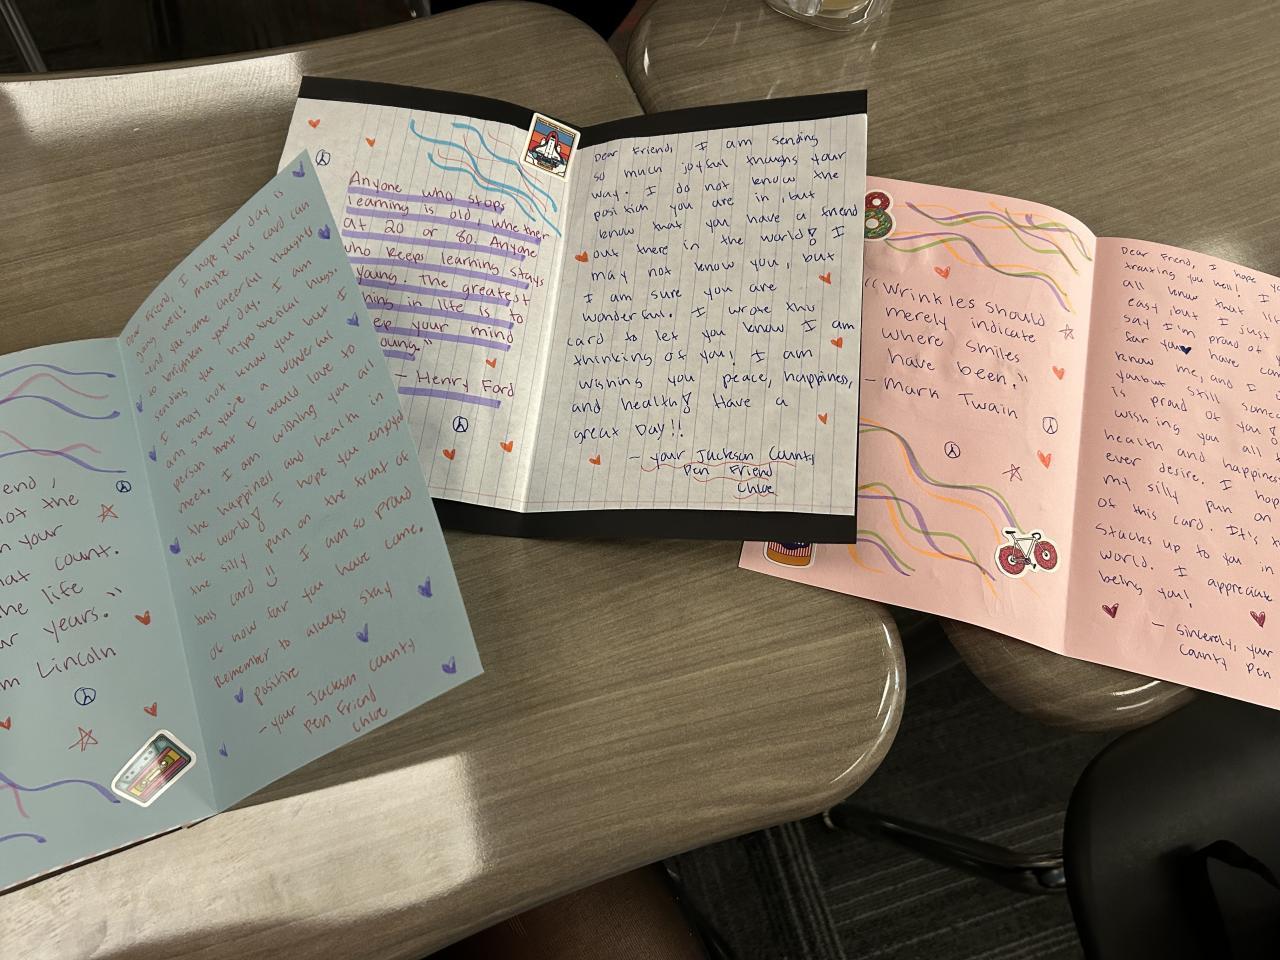 end,
not the
your
that count.
the life
ur years."
m Lincoln
Dear Friend, I hope your day is
going well! maybe this card can
send you some cheerful thoughts
to brighten your day. I am
sending you hypothetical hugs.
I may not know you but I
am sure you're a wonderful
person that I would love to
meet. I am wishing you all
the happiness and health in
the world! I hope you enjoyed
the silly pun on the front of
this card I am so proud
of how far you have come.
Remember to always stay
positive
- your Jackson County
Pen Friend
Chloe
Anyone who stops
learning is old, whether
at 20 or 80. Anyone
who keeps learning stays
young. The greatest
thing in life is to
eep your mind
oung"
- Henry Ford
Dear Friend, I am sending
so much joyful thoughs your
way. I do not know the
position you are in, but
know that you have a friend
out there in the world! I
may not know you, but
I am sure you are
wonderful. I wrote this
card to let you know I am
thinking of you! I am
wishing you peace, happiness,
and health! Have a
great Day!!
- your Jackson County
Pen Friend
Chloe
"Wrinkles should
merely indicate
where smiles
have been."
- Mark Twain
Dear Friend, I hope yo
treating you well! I
all know that li
easy, but I just
say I'm proud of
far you have com
know me, and I d
you but still someo
is proud of you!
wishing you all t
health and happines
ever desire. I hop
my silly pun on
of this card. It's
stacks up to you in
world. I appreciate
being you!
- Sincerely, your
County Pen